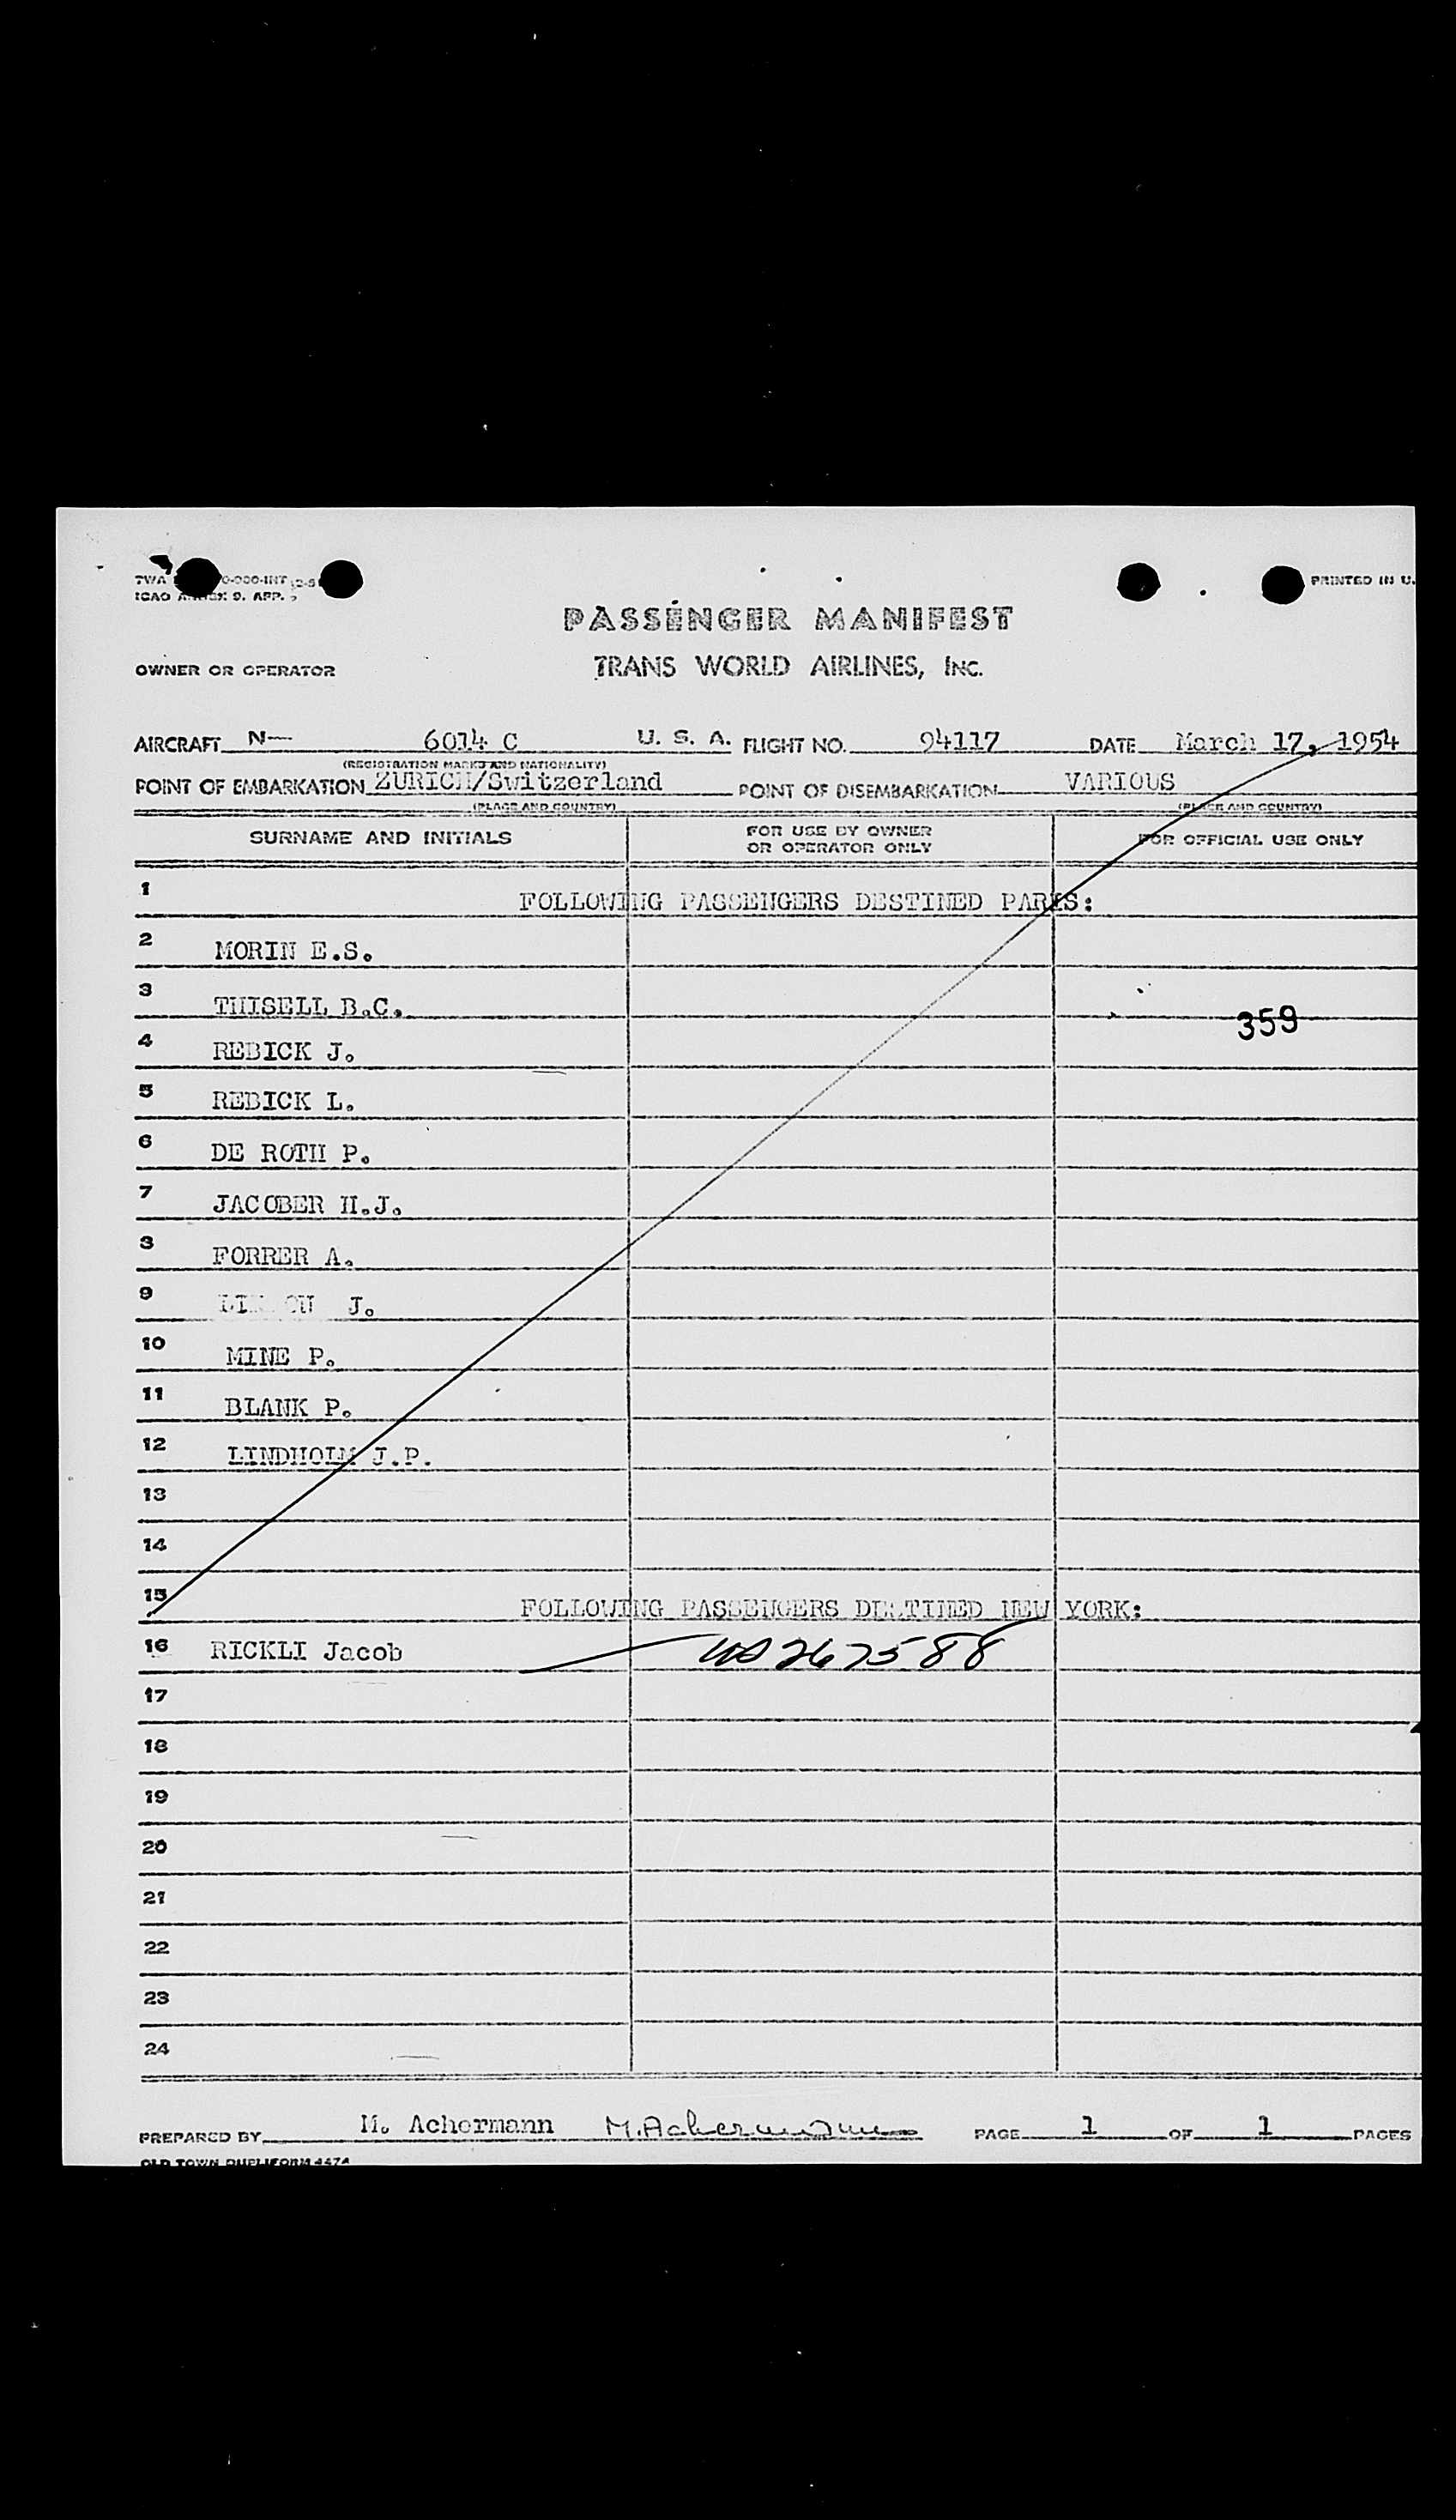 PRINTED IN U.
ICAO ANNEX 9. APP.
PASSENGER MANIFEST
OWNER OR OPERATOR TRANS WORLD AIRLINES, INC.
AIRCRAFT N— 6014 C U. S. A. FLIGHT NO. 94117 DATE March 17, 1954
(REGISTRATION MARKS AND NATIONALITY)
POINT OF EMBARKATION ZURICH/Switzerland POINT OF DISEMBARKATION VARIOUS
(PLACE AND COUNTRY) (PLACE AND COUNTRY)
SURNAME AND INITIALS FOR USE BY OWNER OR OPERATOR ONLY FOR OFFICIAL USE ONLY
1 FOLLOWING PASSENGERS DESTINED PARIS:
2 MORIN E.S.
3 THISELL B.C.
359
4 REBICK J.
5 REBICK L.
6 DE ROTH P.
7 JACOBER H.J.
8 FORRER A.
9 J.
10 MINE P.
11 BLANK P.
12 LINDHOLM J.P.
13
14
15 FOLLOWING PASSENGERS DESTINED NEW YORK:
16 RICKLI Jacob 267588
17
18
19
20
21
22
23
24
PREPARED BY M. Achermann M. Achermann PAGE 1 OF 1 PAGES
OLD TOWN DUPLIFORM 4474